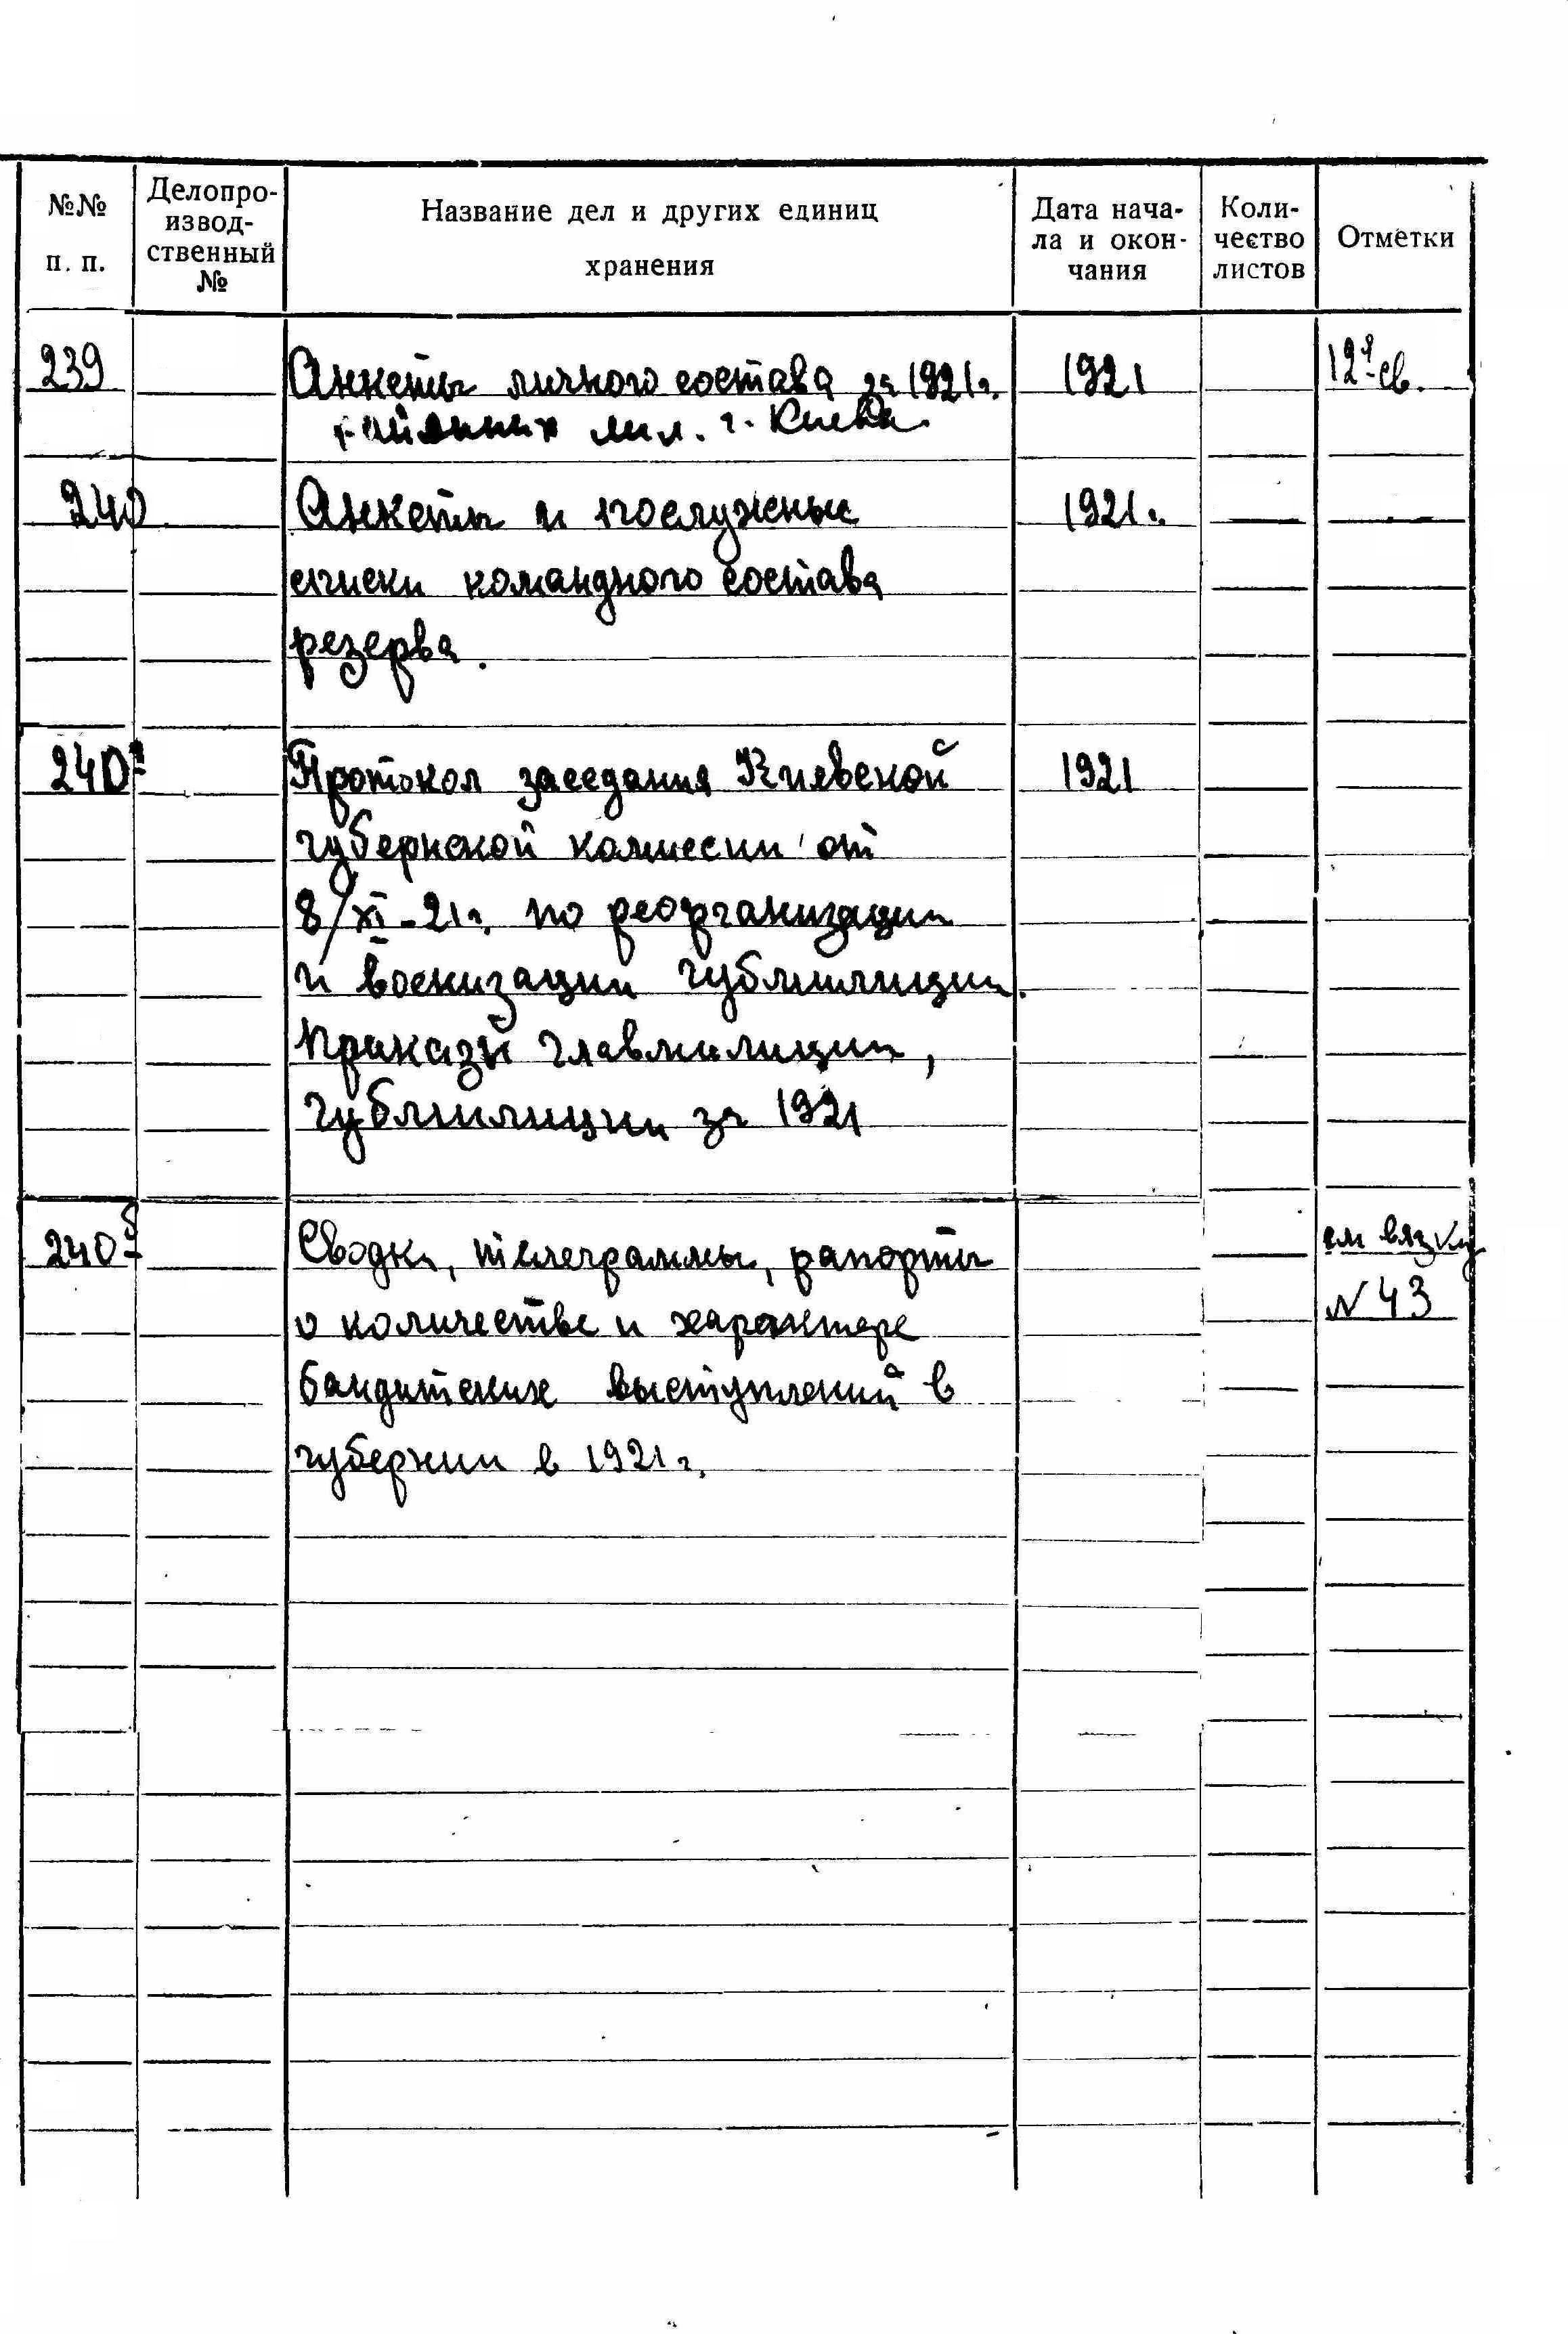 №№ п. п.
Делопро-
извод-
ственный
№
Название дел и других единиц
хранения
Дата нача-
ла и окон-
чания
Коли-
чество
листов
Отметки
239 Анкеты личного состава за 1921г. 1921 12я св.
мил. г. Киева
240 Анкеты и послужные 1921г.
списки командного состава
резерва.
240а Протокол заседания Киевской 1921
губернской комиссии от
8/XI-21г. по реорганизации
и военизации губмилиции.
Приказы главмилиции,
губмилиции за 1921
240б Сводки, телеграммы, рапорты см вязку
о количестве и характере N 43
бандитских выступлений в
губернии в 1921г.